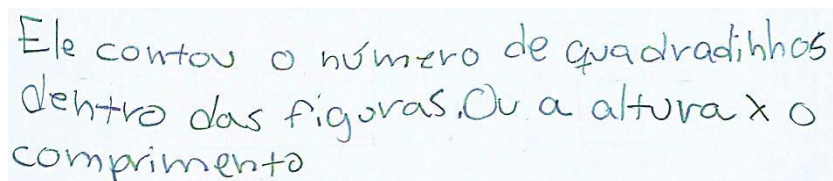 Ele contou o número de quadradinhos
dentro das figuras. Ou a altura x o
comprimento